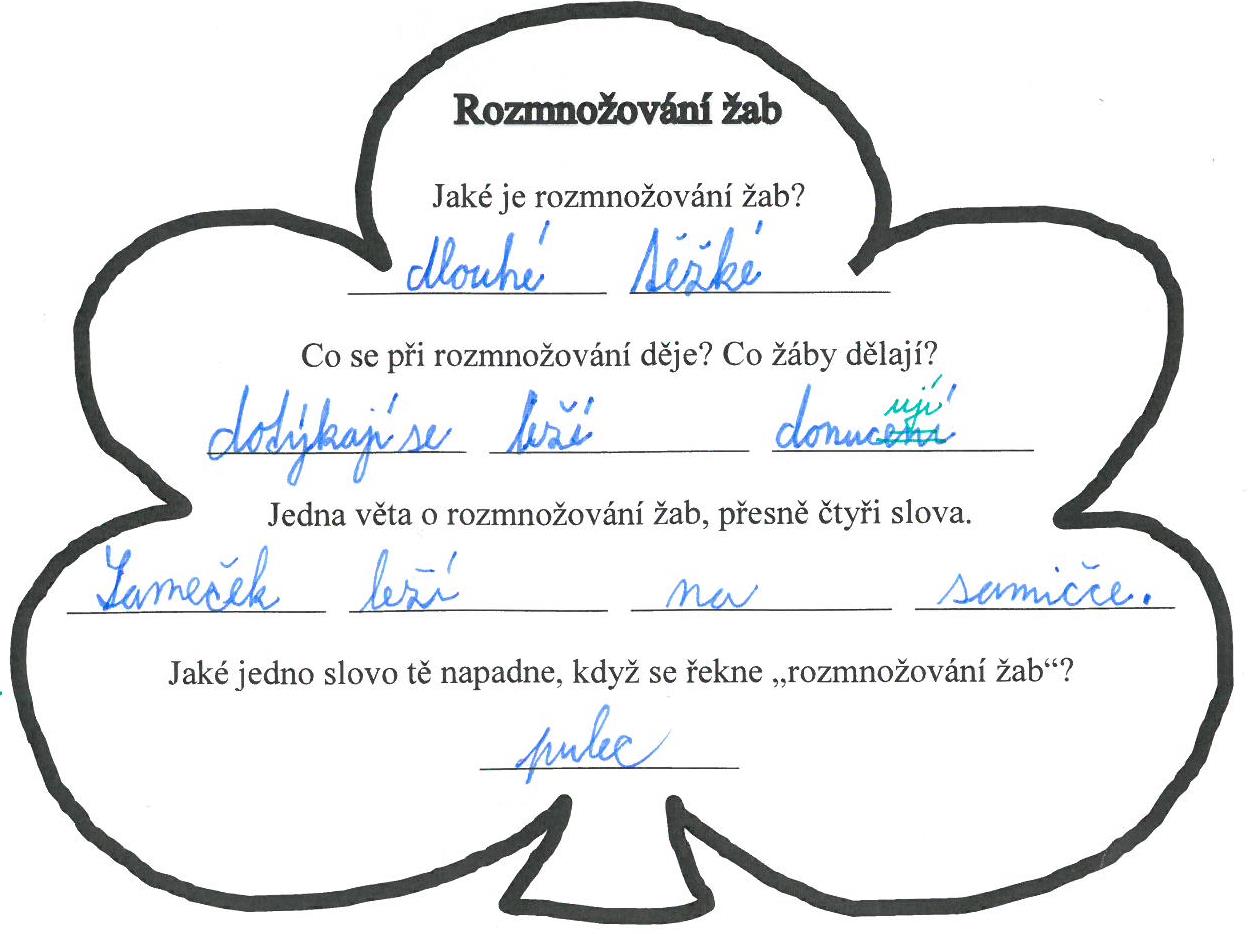 Rozmnožování žab
Jaké je rozmnožování žab?
dlouhé těžké
Co se při rozmnožování děje? Co žáby dělají?
dotýkají se leží donucení ují
Jedna věta o rozmnožování žab, přesně čtyři slova.
Sameček leží na samičče.
Jaké jedno slovo tě napadne, když se řekne „rozmnožování žab“?
pulec